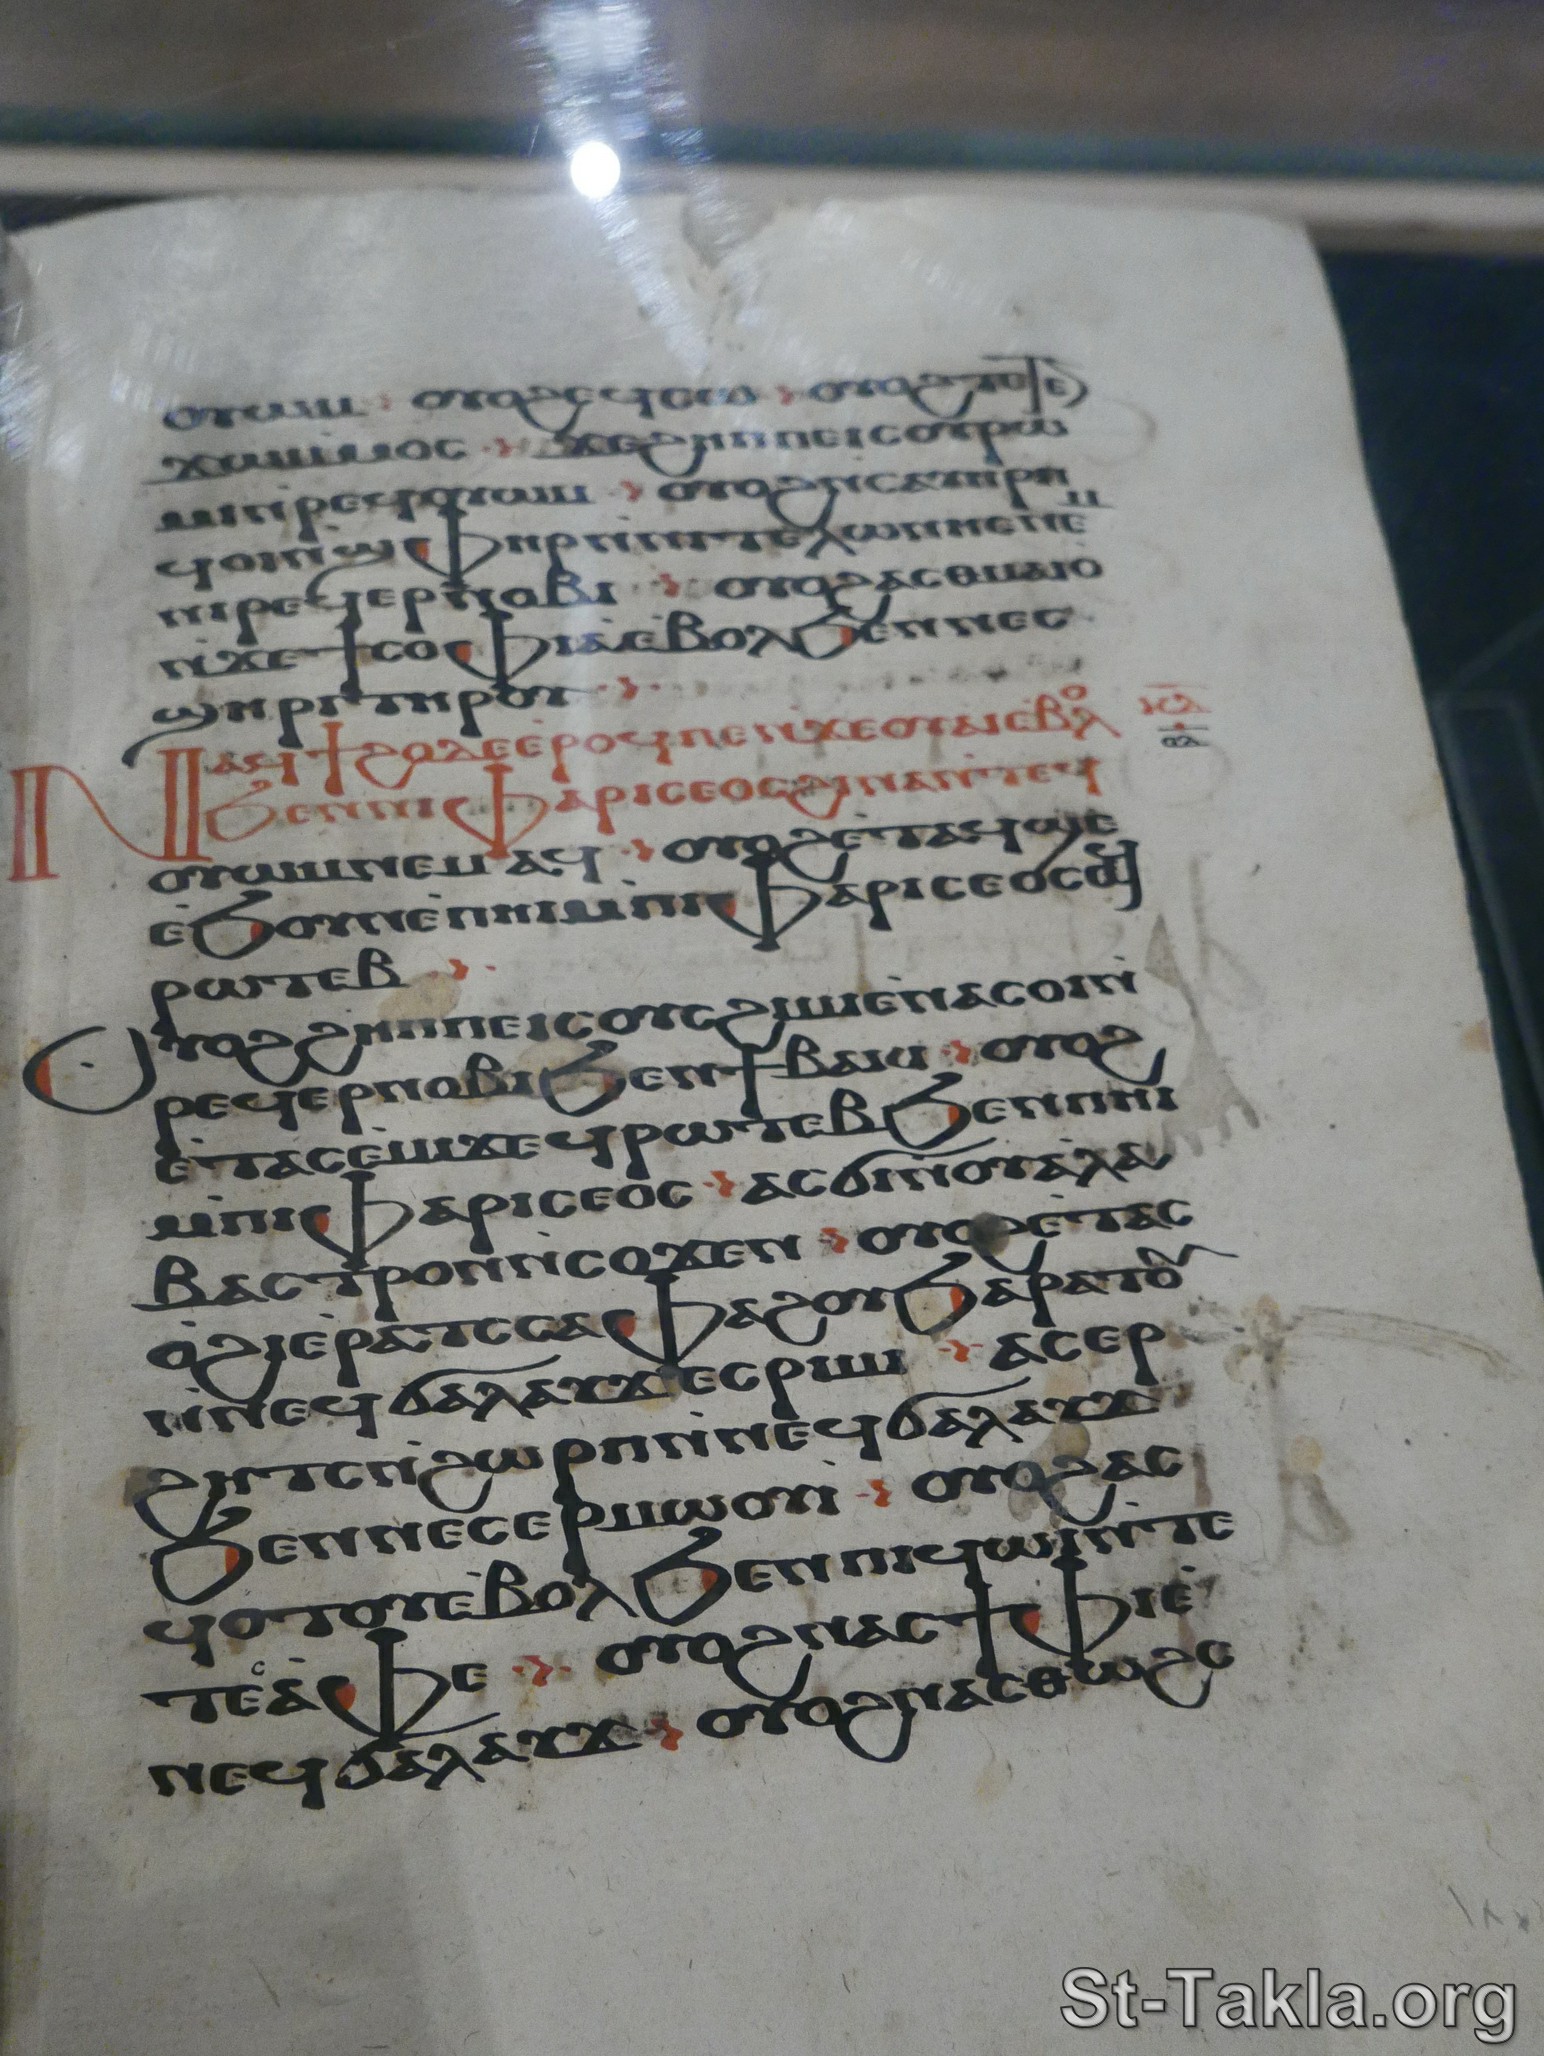 ⲟⲩⲱⲙ ⲟⲩⲟϩ ⲉϥⲥⲱ ⲟⲩⲟϩ ⲡⲉϫⲉ
ⲧⲉⲛ ϫⲉ ϩⲏⲡⲡⲉ ⲓⲥ ⲟⲩⲣⲱ
ⲙⲓ ⲛ̀ⲣⲉϥⲟⲩⲱⲙ ⲟⲩⲟϩ ⲛ̀ⲥⲁⲩⲏⲣⲡ
ⲛ̀ϣⲫⲏⲣ ⲛ̀ⲛⲓⲧⲉⲗⲱⲛⲏⲥ ⲛⲉⲙ
ⲛⲓⲣⲉϥⲉⲣⲛⲟⲃⲓ ⲟⲩⲟϩ ⲁⲥⲑⲙⲁⲓⲟ
ⲛ̀ϫⲉ ϯⲥⲟⲫⲓⲁ ⲉ̀ⲃⲟⲗ ϧⲉⲛ ⲛⲉⲥ
ϣⲏⲣⲓ ⲧⲏⲣⲟⲩ
ⲛⲁϥϯϩⲟ ⲇⲉ ⲉ̀ⲣⲟϥ ⲡⲉ ⲛ̀ϫⲉ ⲟⲩⲁⲓ ⲉ̀ⲃⲟⲗ
ϧⲉⲛ ⲛⲓⲫⲁⲣⲓⲥⲉⲟⲥ ϩⲓⲛⲁ ⲛ̀ⲧⲉϥ
ⲟⲩⲱⲙ ⲛⲉⲙⲁϥ ⲟⲩⲟϩ ⲉ̀ⲧⲁϥϣⲉ
ⲉ̀ϧⲟⲩⲛ ⲉ̀ⲡⲏⲓ ⲙ̀ⲡⲓⲫⲁⲣⲓⲥⲉⲟⲥ ⲁϥ
ⲣⲱⲧⲉⲃ
ⲟⲩⲟϩ ϩⲏⲡⲡⲉ ⲓⲥ ⲟⲩⲥϩⲓⲙⲓ ⲉ̀ⲛⲁⲥⲟⲓ ⲛ̀
ⲣⲉϥⲉⲣⲛⲟⲃⲓ ϧⲉⲛ ϯⲃⲁⲕⲓ ⲟⲩⲟϩ
ⲉ̀ⲧⲁⲥⲉ̀ⲙⲓ ϫⲉ ϥⲣⲱⲧⲉⲃ ϧⲉⲛ ⲡⲏⲓ
ⲙ̀ⲡⲓⲫⲁⲣⲓⲥⲉⲟⲥ ⲁⲥϭⲓ ⲛ̀ⲟⲩⲁ̀ⲗⲁ
ⲃⲁⲥⲧⲣⲟⲛ ⲛ̀ⲥⲟϫⲉⲛ ⲟⲩⲟϩ ⲉ̀ⲧⲁⲥ
ⲟ̀ϩⲓ ⲉ̀ⲣⲁⲧⲥ ⲥⲁⲫⲁϩⲟⲩ ϧⲁⲣⲁⲧⲟⲩ
ⲛ̀ⲛⲉϥϭⲁⲗⲁⲩϫ ⲉⲥⲣⲓⲙⲓ ⲁⲥⲉⲣ
ϩⲏⲧⲥ ⲛ̀ϩⲱⲣⲡ ⲛ̀ⲛⲉϥϭⲁⲗⲁⲩϫ
ϧⲉⲛ ⲛⲉⲥⲉⲣⲙⲱⲟⲩⲓ̀ ⲟⲩⲟϩ ⲁⲥ
ϥⲟⲧⲟⲩ ⲉ̀ⲃⲟⲗ ϧⲉⲛ ⲡⲓϥⲱⲓ ⲛ̀ⲧⲉ
ⲧⲉⲥⲁ̀ⲫⲉ ⲟⲩⲟϩ ⲛⲁⲥϯⲫⲓ ⲉ̀
ⲛⲉϥϭⲁⲗⲁⲩϫ ⲟⲩⲟϩ ⲛⲁⲥⲑⲱϩⲥ
St-Takla.org